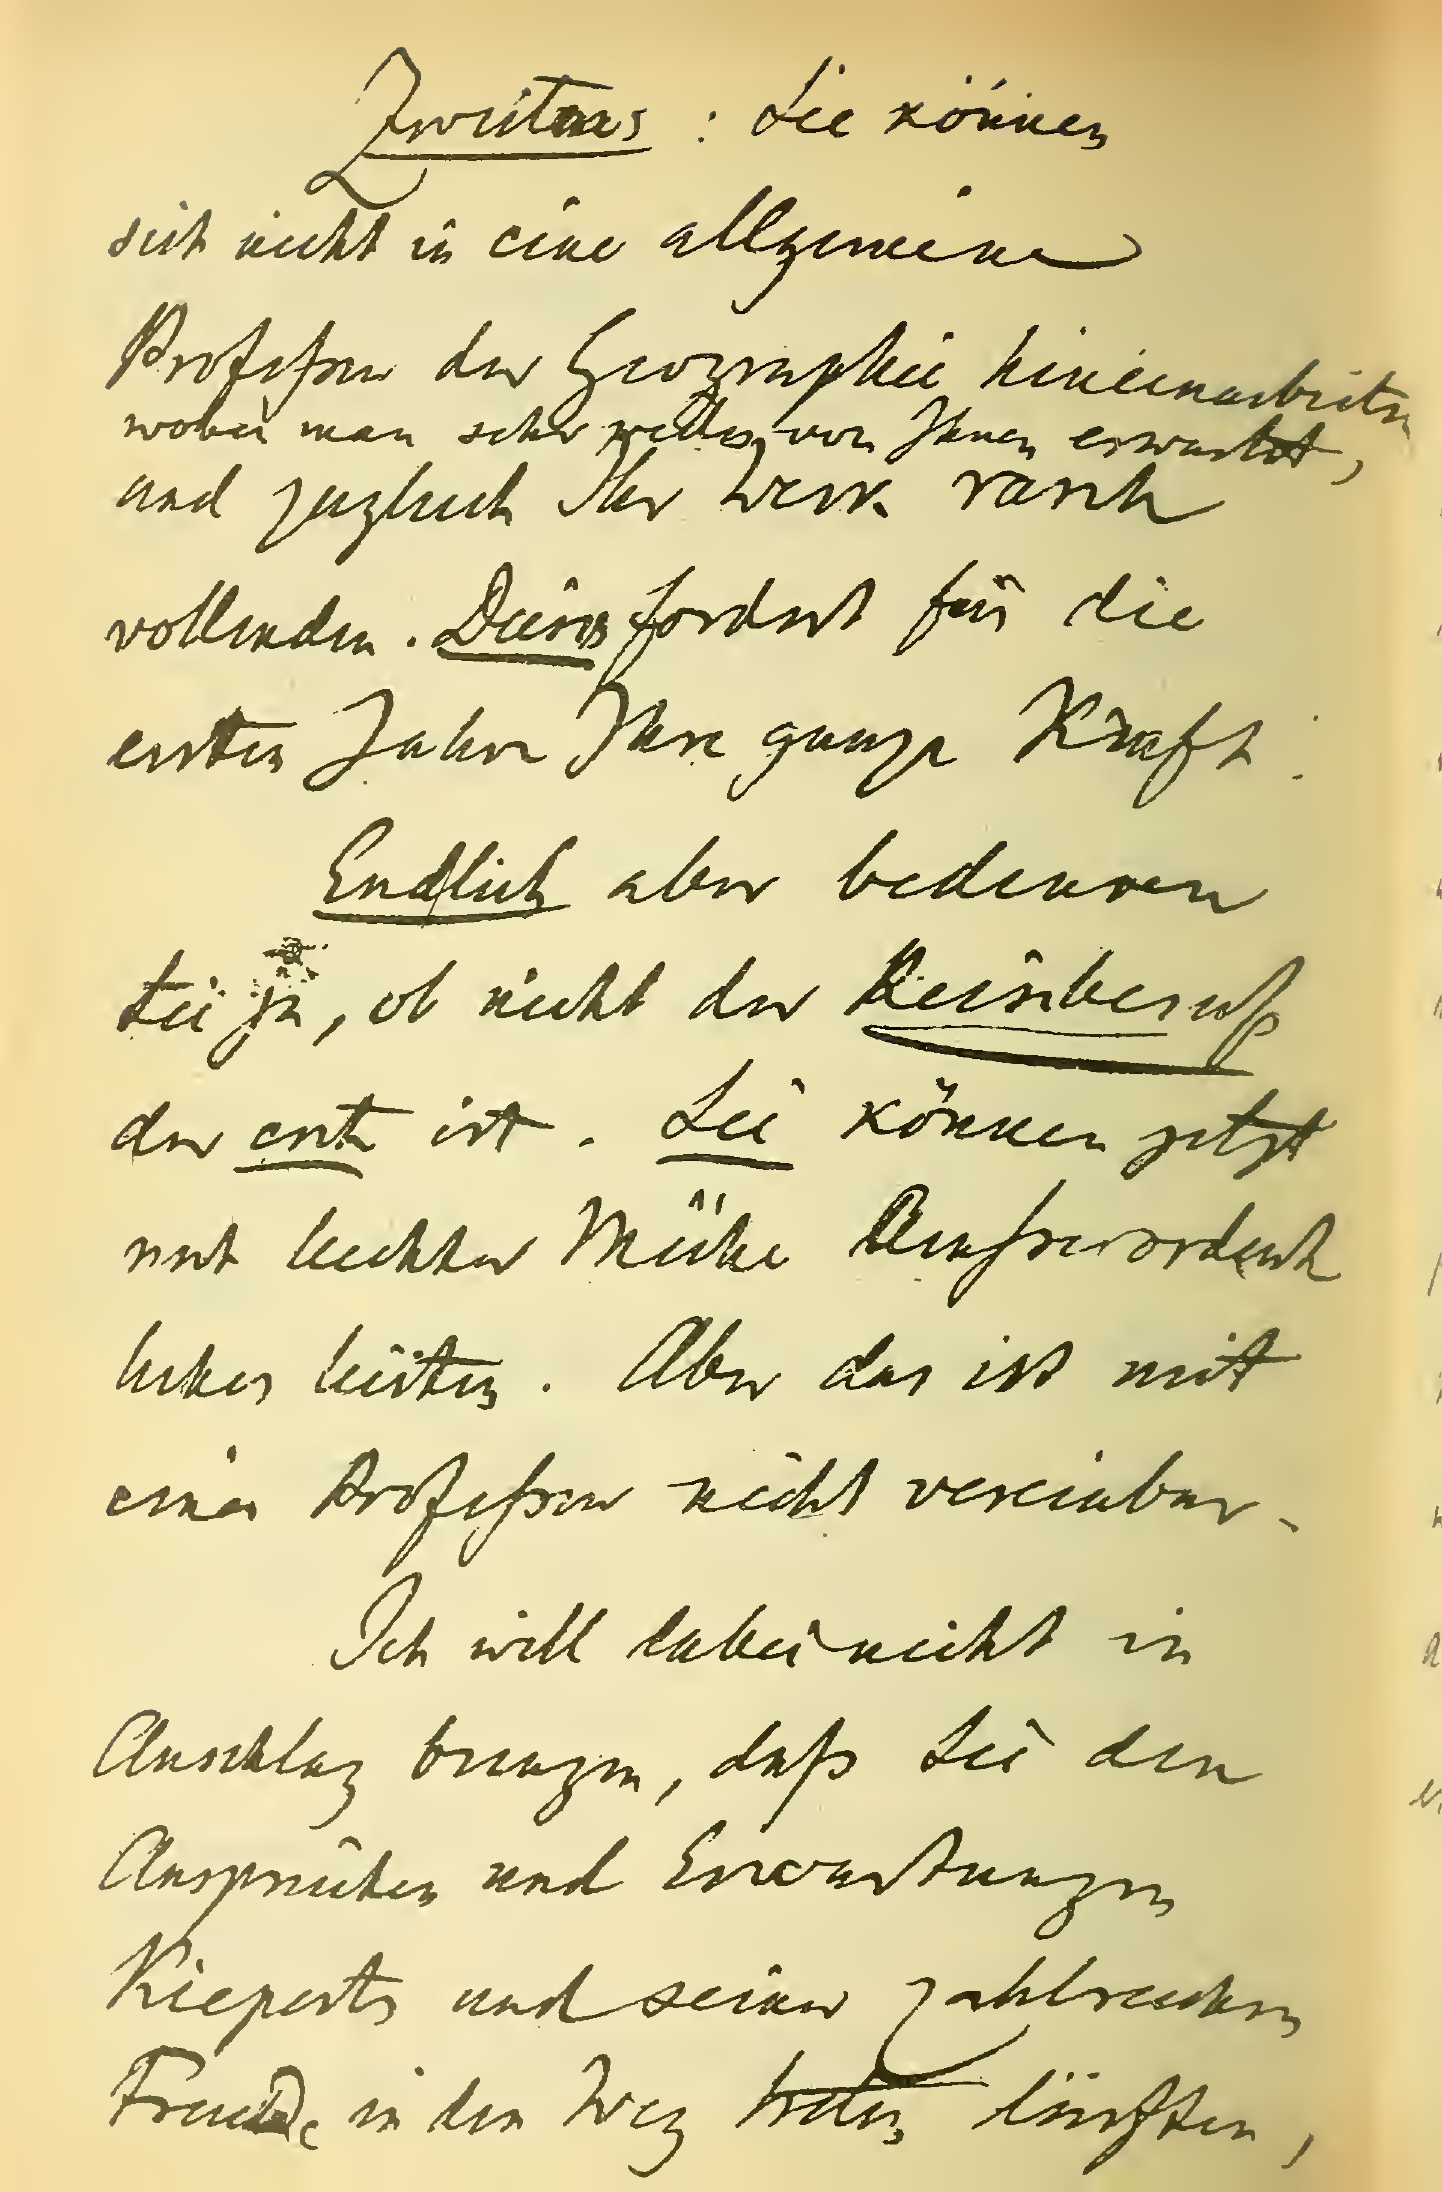 Zweitens : Sie können
sich nicht in eine allgemeine
Professur der Geographie hineinarbeiten
wobei man sehr vieles von Ihnen erwartet,
und zugleich Ihr Werk rasch
vollenden. Dieses fordert für die
ersten Jahre Ihre ganze Kraft.
Endlich aber bedenken
Sie ja, ob nicht der Reiseberuf
der erste ist. Sie können jetzt
mit leichter Mühe Ausserordent
liches leisten. Aber das ist mit
einer Professur nicht vereinbar.
Ich will dabei nicht in
Anschlag bringen, daß Sie den
Ansprüchen und Erwartungen
Kieperts und seiner zahlreichen
Freunde in den Weg treten dürften,